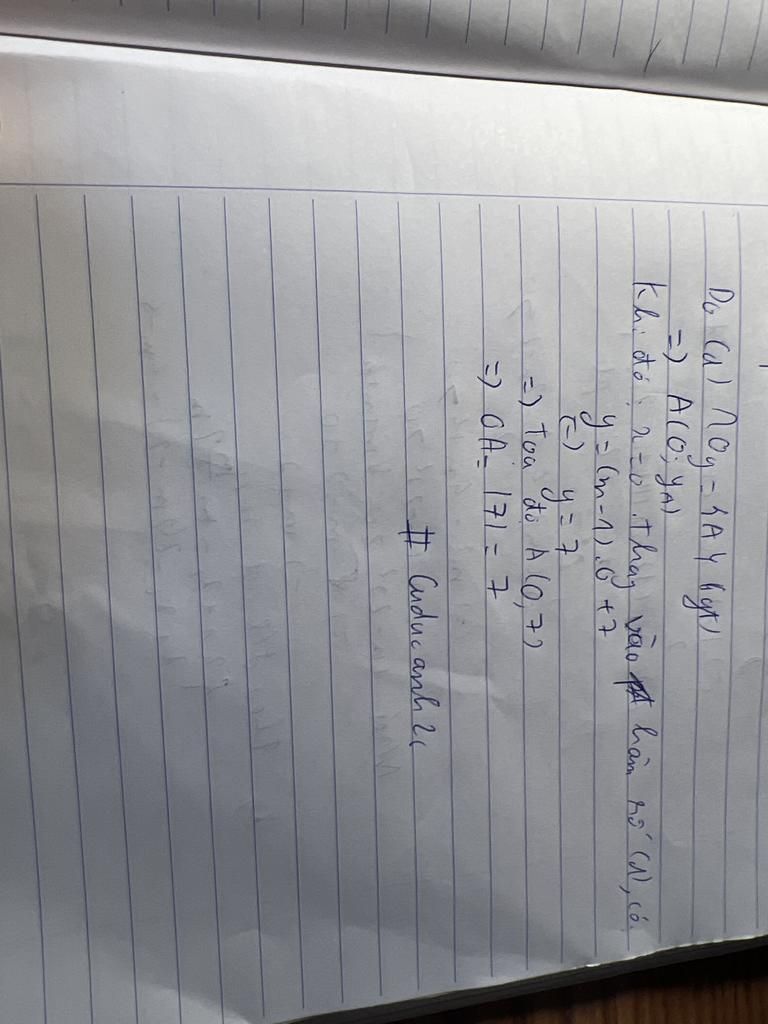 Do (d) ∩ Oy = {A} (gt)
=) A(0; yA)
Khi đó: x=0. Thay vào hàm số (d), có:
y = (m-1).0 +7
(=) y = 7
=) Toạ độ A(0,7)
=) OA = |7| = 7
# Cuducanh2(